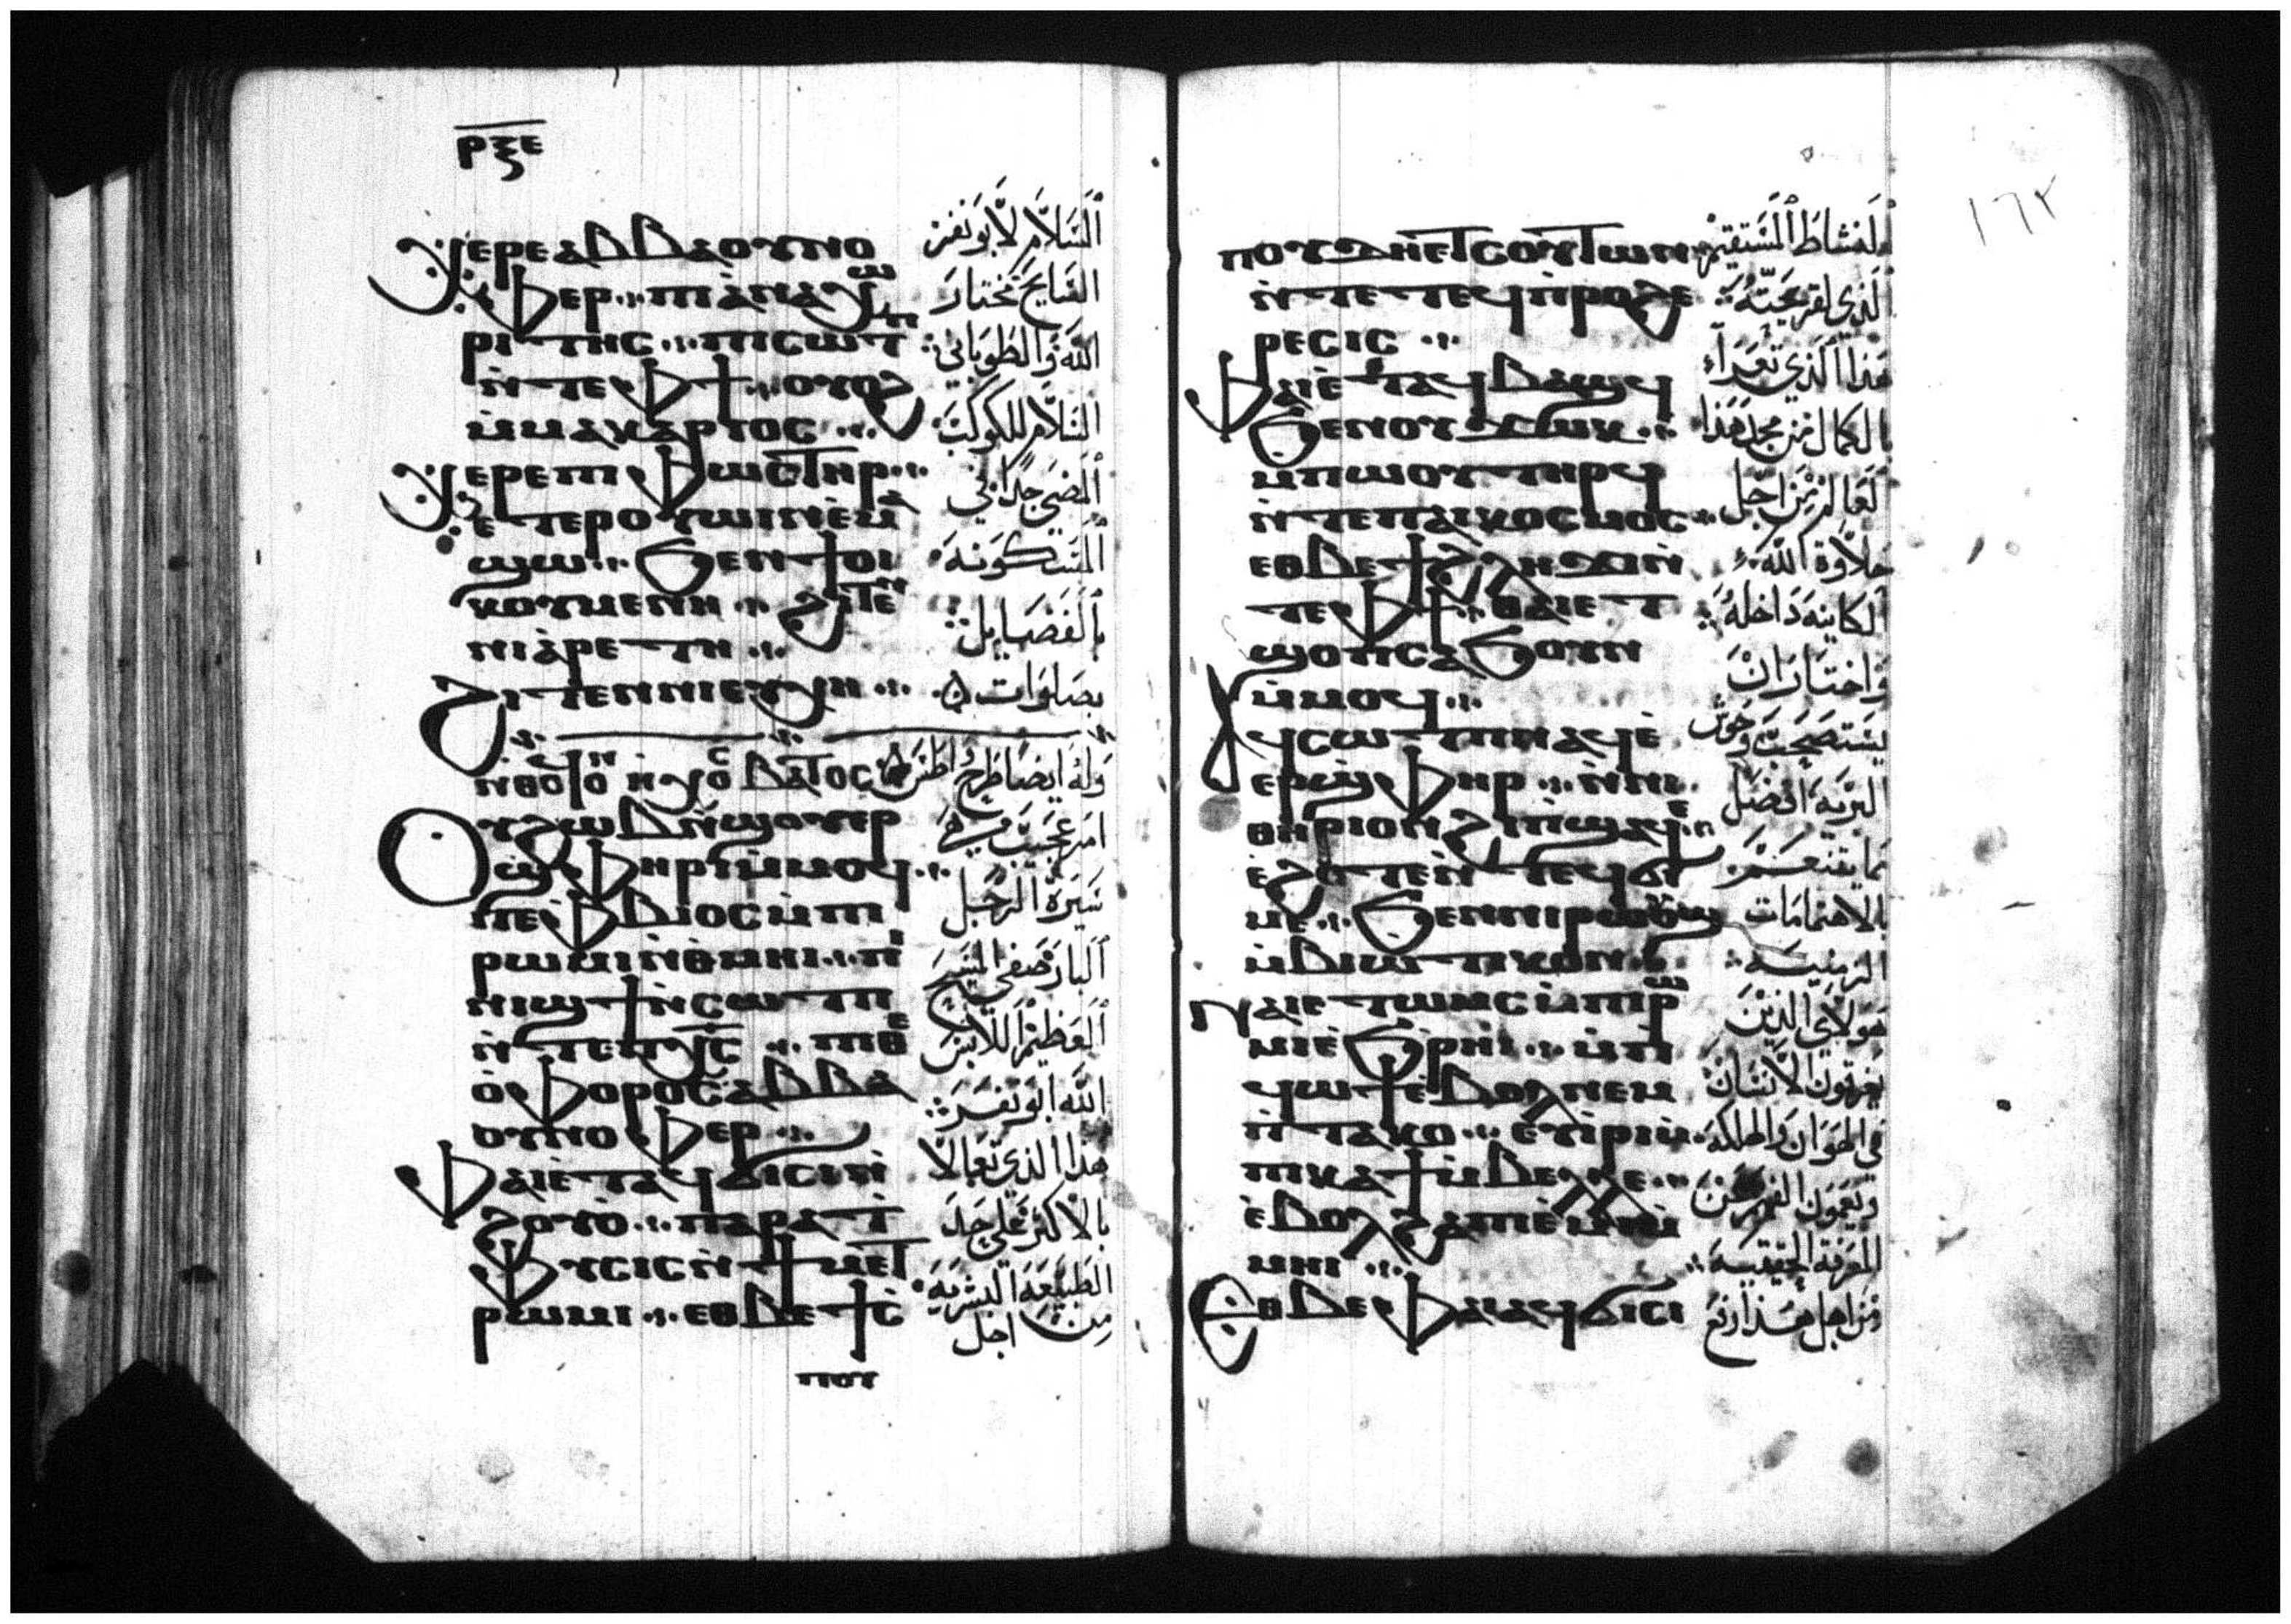 ⲣⲝⲉ
ⲭⲉⲣⲉⲁⲃⲃⲁⲟⲩⲛⲟ
ⲫⲉⲣ ⲡⲓⲁⲛⲁⲭⲱ
ⲣⲓⲧⲏⲥ ⲡⲓⲥⲱⲧⲡ
ⲛ̀ⲧⲉⲫϯ ⲟⲩⲟϩ
ⲙ̀ⲙⲁⲕⲁⲣⲓⲟⲥ
ⲭⲉⲣⲉⲡⲓⲫⲱⲥⲧⲏⲣ
ⲉⲧⲉⲣⲟⲩⲱⲓⲛⲓⲉⲙⲁ
ϣⲱ ϧⲉⲛϯⲟⲓ
ⲕⲟⲩⲙⲉⲛⲏ ϩⲓⲧⲉⲛ
ⲛⲓⲁ̀ⲣⲉⲧⲏ
ϩⲓⲧⲉⲛⲛⲓⲉⲩⲭⲏ
ⲟⲩϩⲱⲃⲛ̀ϣⲟⲩⲉⲣ
ϣⲫⲏⲣⲓⲙ̀ⲙⲟϥ
ⲡⲉⲫⲃⲓⲟⲥⲙ̀ⲡⲓ
ⲣⲱⲙⲓⲛ̀ⲑⲙⲏⲓ ⲡⲓ
ⲛⲓϣϯⲛ̀ⲥⲱⲧⲡ
ⲛ̀ⲧⲉⲡⲭ̅ⲥ̅ ⲡⲓⲑⲉ
ⲟ̀ⲫⲟⲣⲟⲥⲁⲃⲃⲁ
ⲟⲩⲛⲟⲫⲉⲣ
ⲫⲁⲓⲉ̀ⲧⲁϥϭⲓⲥⲓⲛ̀
ϩⲟⲩⲟ̀ ⲡⲁⲣⲁϯ
ⲫⲩⲥⲓⲥⲛ̀ϯⲙⲉⲧ
ⲣⲱⲙⲓ ⲉⲑⲃⲉϯⲥ̀
ⲡⲟⲩ
السلام لابو نفر
السايح مختار
الله والطوباني
السلام للكوكب
المضي جدا في
المسكونه
بالفضايل
بصلوات
امر عجيب هي
سيرة الرجل
البار صفي المسيح
العظيم اللابس
الله ابو نفر
هذا الذي تعالا
بالاكثر علي حد
الطبيعه البشريه
من اجل
١٦٢
ⲡⲟⲩⲇⲏⲉⲧⲥⲟⲩⲧⲱⲛ
ⲛ̀ⲧⲉⲧⲉϥⲡⲣⲟϩⲉ
ⲣⲉⲥⲓⲥ
ⲫⲁⲓⲉ̀ⲧⲁϥⲃⲁϣϥ
ϧⲉⲛⲟⲩϫⲱⲕ
ⲙ̀ⲡⲱⲟⲩⲧⲏⲣϥ
ⲛ̀ⲧⲉⲡⲁⲓⲕⲟⲥⲙⲟⲥ
ⲉⲑⲃⲉϯϩⲗⲏϫⲓⲛ̀
ⲧⲉⲫϯ ⲑⲁⲓⲉⲧ
ϣⲟⲡⲥⲁϧⲟⲩⲛ
ⲙ̀ⲙⲟϥ
ⲁϥⲥⲱⲧⲡⲛⲁϥⲉ̀
ⲉⲣϣⲫⲏⲣ ⲛ̀ⲛⲓ
ⲑⲏⲣⲓⲟⲛ
ⲙⲉ ϧⲉⲛⲛⲓⲣⲱⲟⲩϣ
ⲙ̀ⲃⲓⲱⲧⲓⲕⲟⲛ
ⲛⲁⲓⲉⲧⲱⲙⲥⲙ̀ⲡⲓⲣⲱ
ⲙⲓⲉ̀ϧⲣⲏⲓ ⲙ̀ⲡⲓ
ϥⲱϯⲉ̀ⲃⲟⲗⲛⲉⲙ
ⲡⲧⲁⲕⲟ ⲉⲩⲓⲣⲓⲙ̀
ⲡⲓⲕⲁϯⲙ̀ⲃⲉⲗⲗⲉ
ⲉ̀ⲃⲟⲗϩⲁⲡⲓⲉ̀ⲙⲓⲙ̀
ⲙⲏⲓ
ⲉⲑⲃⲉⲫⲁⲓⲁϥϭⲓⲥⲓ
النشاط المستقيم
الذي لقريحته
هذا الذي تعرا
بالكمال من مجد هذا
العالم من اجل
حلاوة الله
الكاينه داخله
واختار ان
يستصحب وحوش
البريه افضل
مما يتنعم
بالاهتمامات
الزمنيه
هولاي الذين
يغرقون الانسان
في الهوان والهلكه
ويعمون الفهم عن
المعرفة الحقيقيه
من اجل هذا ارتفع